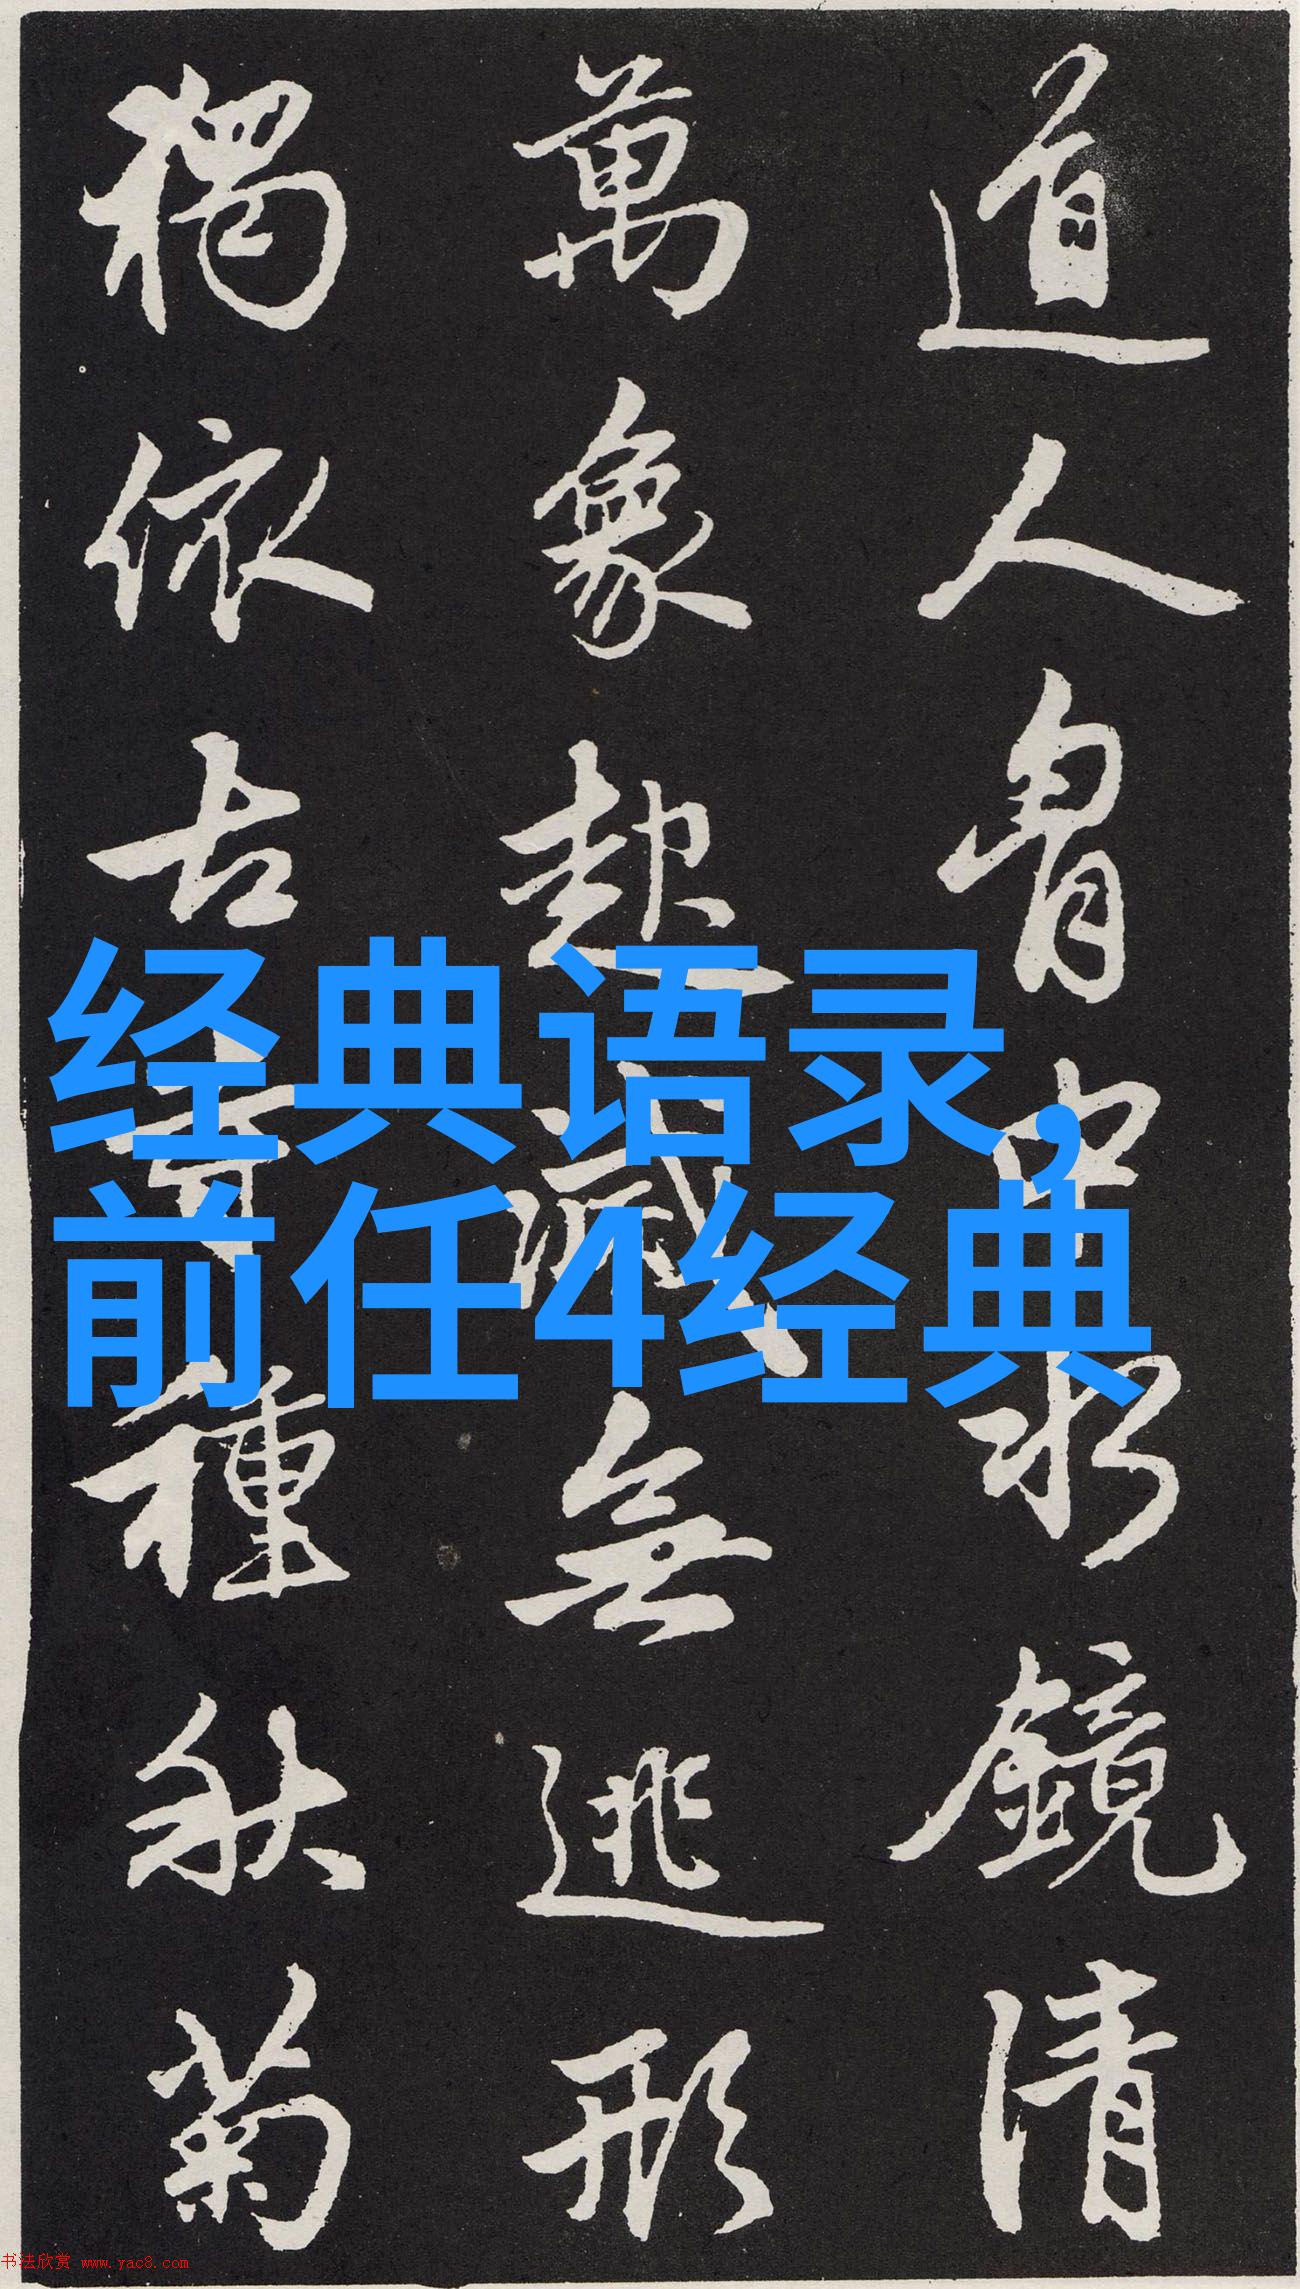 道人胷中水鏡清
萬象起滅無逃形
獨依古寺種秋菊
经典语录,
前任4经典
书法欣赏 www.yac8.com